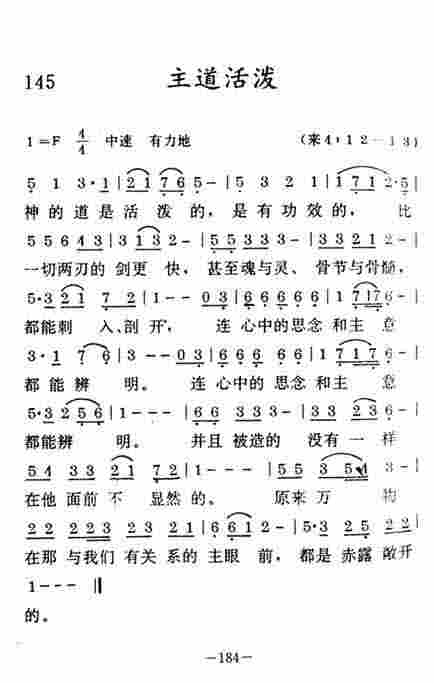 145 主道活泼
1=F 4/4 中速 有力地 (来4:12-13)
5 1 3·1|2 1 7 6 5-|5 3 2 1|1 7 1 2·5|
神的道是活 泼的,是有功效的, 比
5 5 6 4 3|3 1 3 2-|5 5 3 3 3-|3 3 2 1 2-|
一切两刃的剑更 快, 甚至魂与灵、骨节与骨髓,
5·3 2 1 7 2|1-- 0 3|6 6 6 6 6|1 7 1 7 6-|
都能刺 入、剖开, 连心中的思念和主 意
3·1 7 6|3-- 0 3|6 6 6 6 6|1 7 1 7 6-|
都能辨 明。 连心中的思念和主 意
5·3 2 5 6|1---|6 6 3 3 3-|3 3 2 3 6-|
都能辨 明。 并且被造的 没有一 样
5 4 3 3 2 1 7 2|1---|5 5 3 5 4 3-|
在他面前不 显然的。 原来万 物
2 2 2 2 3 2 3 2 1|6 6 1 2-|5·3 2 5 2 2|
在那与我们有关系的主眼 前, 都是赤露敞开
1---‖
的。
—184—